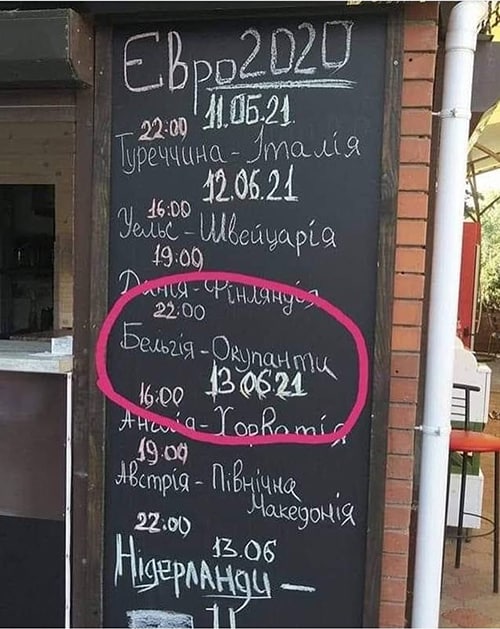 Евро2020
11.06.21
22:00
Туреччина - Італія
12.06.21
16:00
Уельс - Швейцарія
19:00
Данія - Фінляндія
22:00
Бельгія - Окупанти
13 06 21
16:00
Англія - Хорватія
19:00
Австрія - Північна
Македонія
22:00
13.06
Нідерланди -